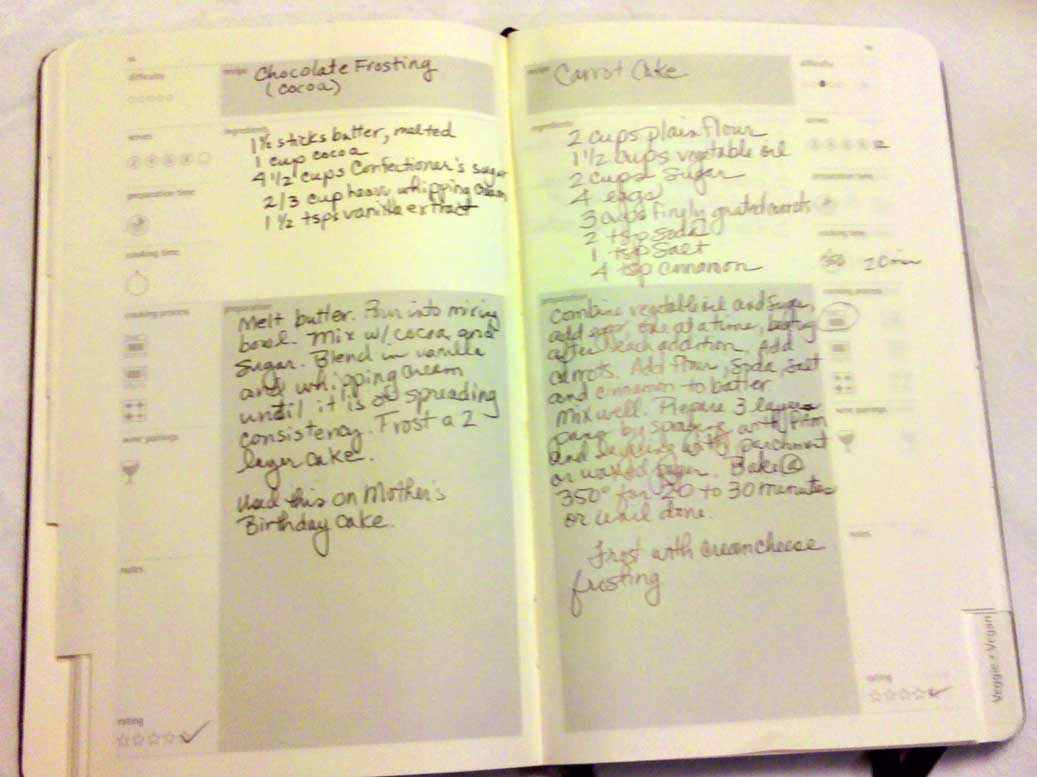 recipe Chocolate Frosting
(cocoa)
difficulty
serves
preparation time
cooking time
cooking process
wine pairings
notes
rating
ingredients
1 1/2 sticks butter, melted
1 cup cocoa
4 1/2 cups Confectioner's sugar
2/3 cup heavy whipping cream
1 1/2 tsps vanilla extract
preparation
Melt butter. Pour into mixing
bowl. Mix w/ cocoa and
sugar. Blend in vanilla
and whipping cream
until it is of spreading
consistency. Frost a 2
layer cake.
Used this on Mother's
Birthday Cake.
recipe Carrot Cake
ingredients
2 cups plain flour
1 1/2 cups vegetable oil
2 cups sugar
4 eggs
3 cups finely grated carrots
2 tsp soda
1 tsp salt
4 tsp cinnamon
preparation
Combine vegetable oil and sugar,
add eggs, one at a time, beating
after each addition. Add
carrots. Add flour, soda, salt
and cinnamon to batter
Mix well. Prepare 3 layer
pans by spraying with Pam
and layering with parchment
or waxed paper. Bake @
350° for 20 to 30 minutes
or until done.
Frost with cream cheese
frosting
difficulty
serves
12
preparation time
cooking time
350 20 min
cooking process
wine pairings
notes
rating
Veggie • Vegan